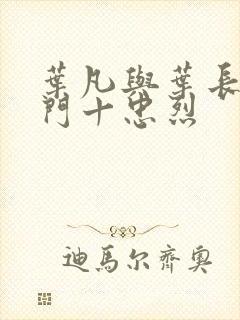 葉凡與葉長
門十忠烈
迪馬尔齊奥